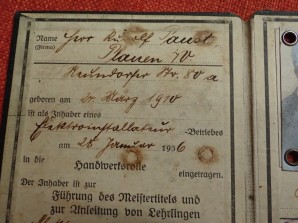 Name Herr Rudolf Faust
(Firma) Plauen i/V
Neundorfer Str. 80 a
geboren am März 1910
ist als Inhaber eines
Elektroinstallateur-Betriebes
am 28. Januar 1936
in die
Handwerksrolle
eingetragen.
Der Inhaber ist zur
Führung des Meistertitels und
und zur Anleitung von Lehrlingen